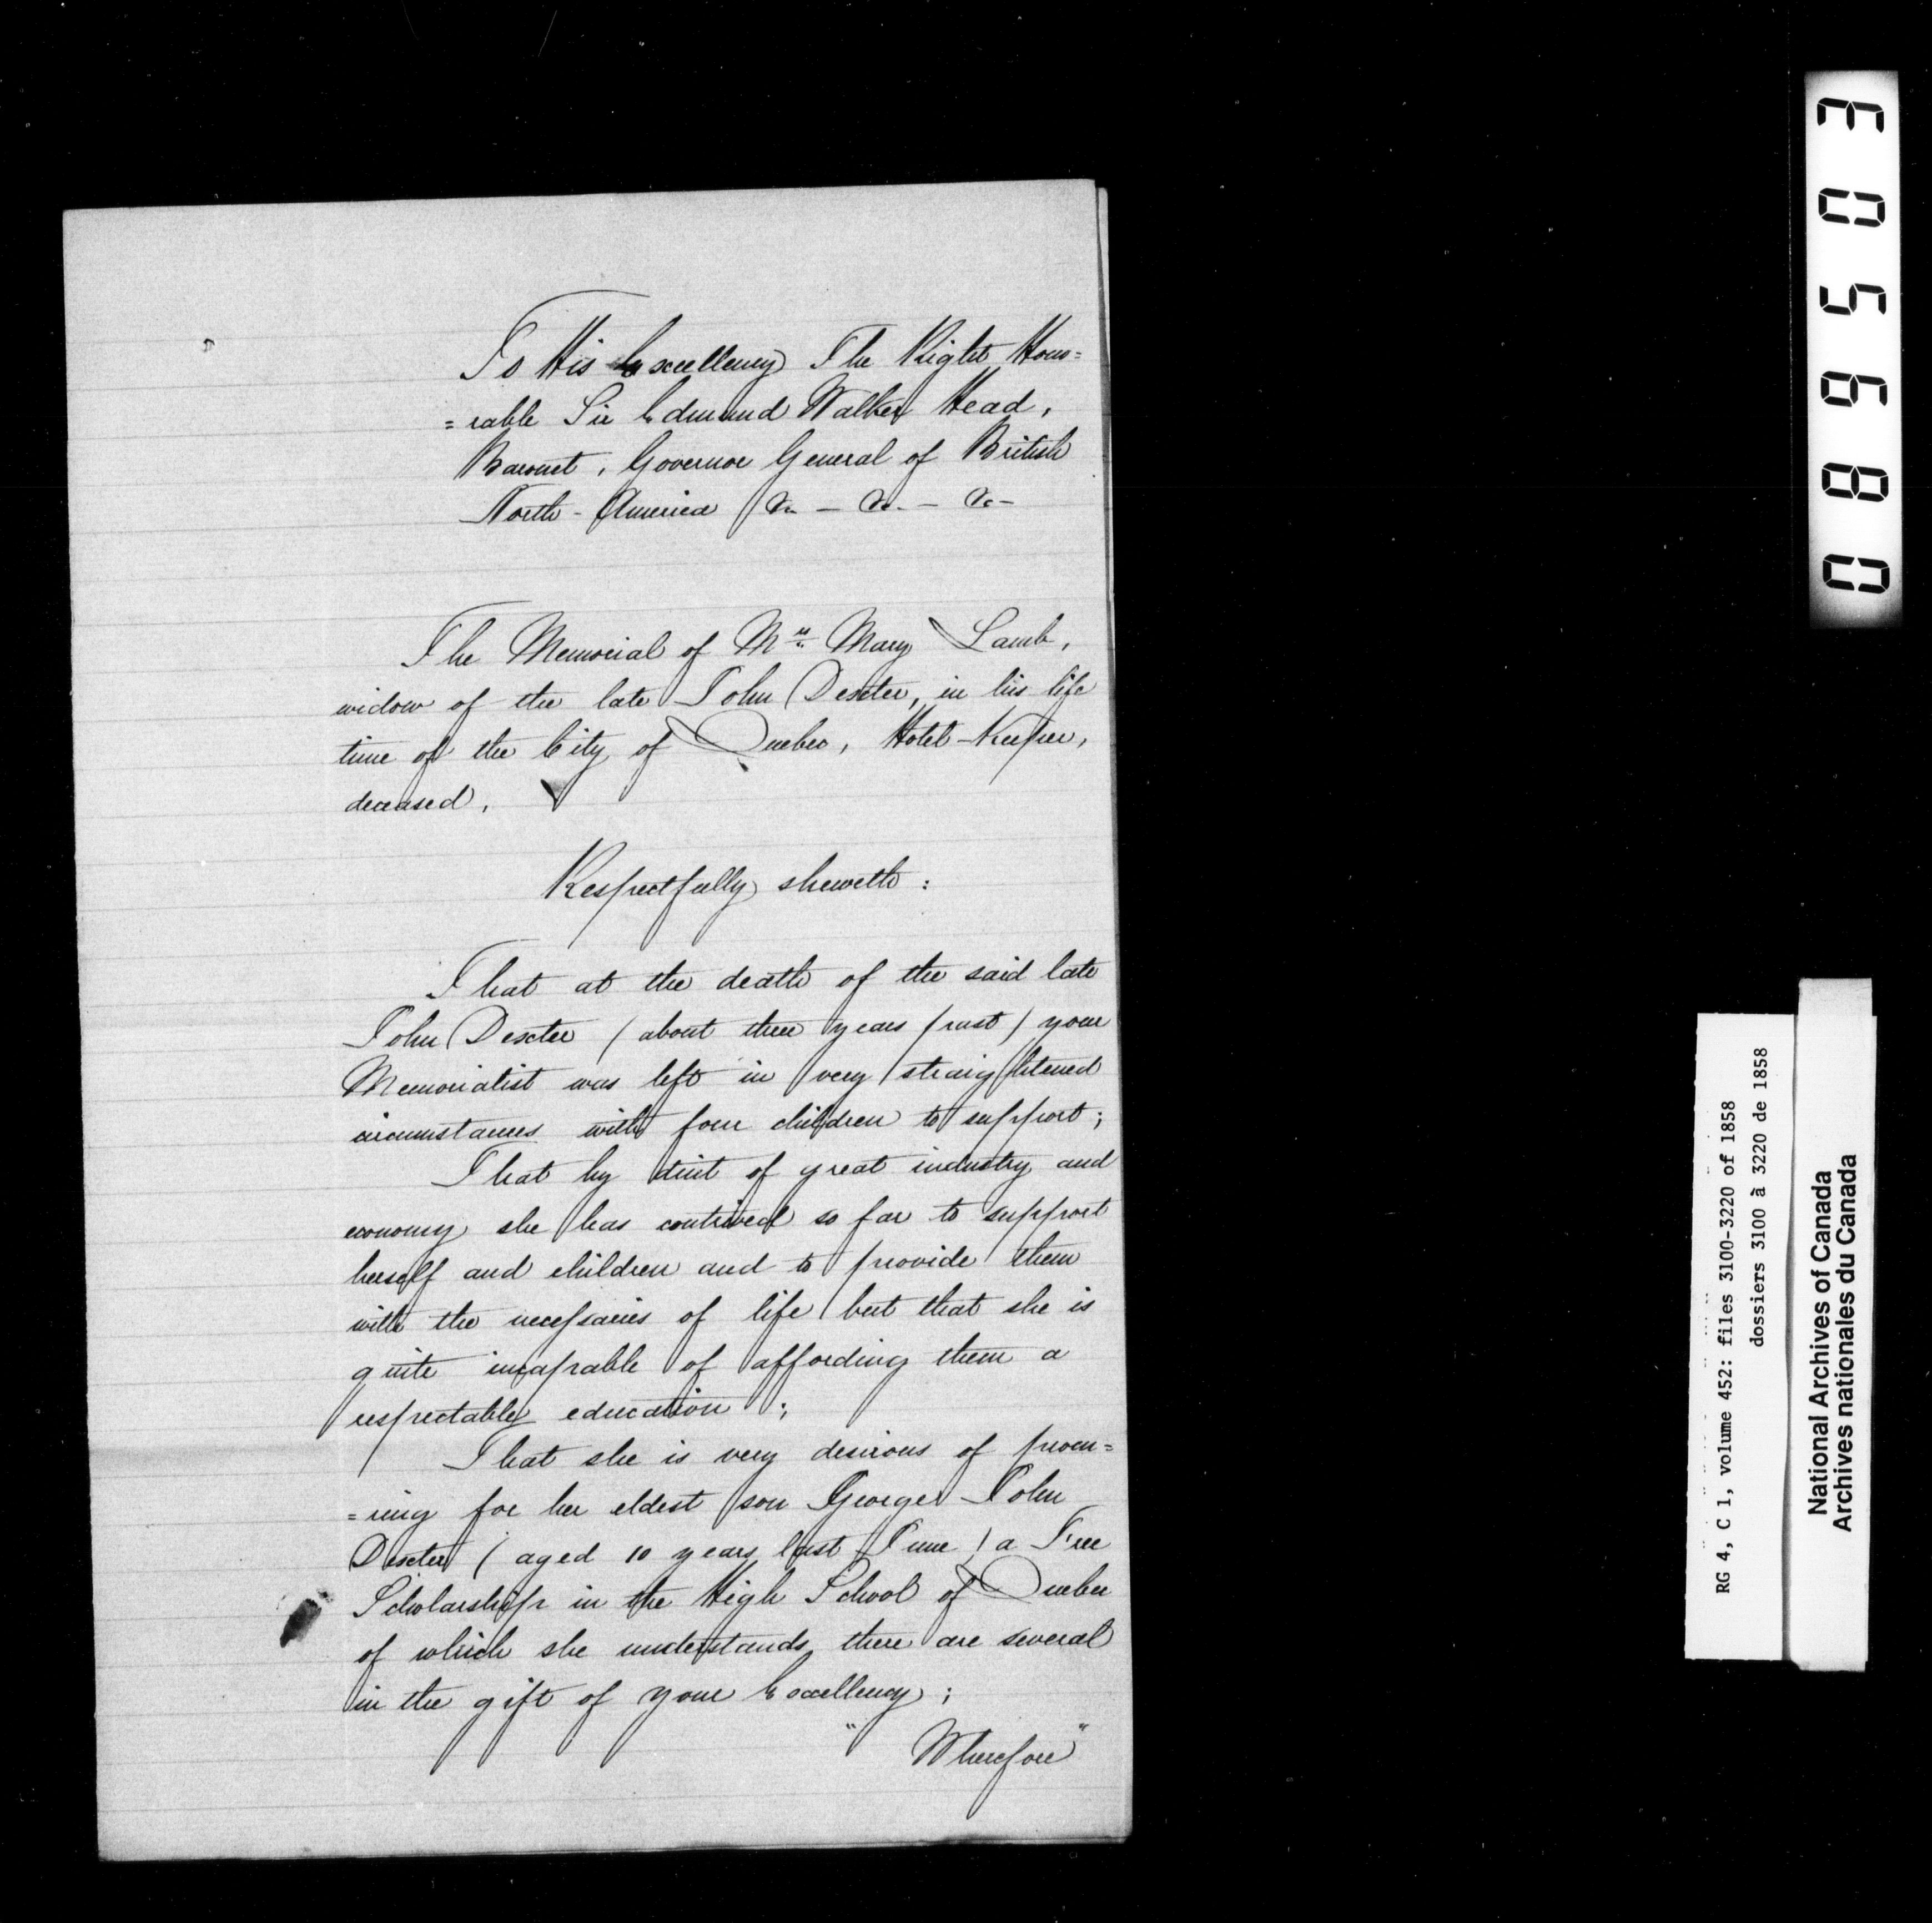 To His Excellency The Right Hono=
=rable Sir Edmund Walker Head,
Baronet, Governor General of British
North-America &c. — &c. — &c —
The Memorial of Mrs. Mary Lamb,
widow of the late John Dexter, in his life
time of the City of Quebec, Hotel-Keeper,
deceased,
Respectfully sheweth:
That at the death of the said late
John Dexter (about three years past) your
Memorialist was left in very straightened
circumstances with four children to support;
That by dint of great industry and
economy she has contrived so far to support
herself and children and to provide them
with the necessaries of life but that she is
quite incapable of affording them a
respectable education;
That she is very desirous of procu=
=ring for her eldest son George John
Dexter (aged 10 years last June) a Free
Scholarship in the High School of Quebec
of which she understands there are several
in the gift of your Excellency;
"Wherefore"
089503
RG 4, C 1, volume 452: files 3100-3220 of 1858
dossiers 3100 à 3220 de 1858
National Archives of Canada
Archives nationales du Canada